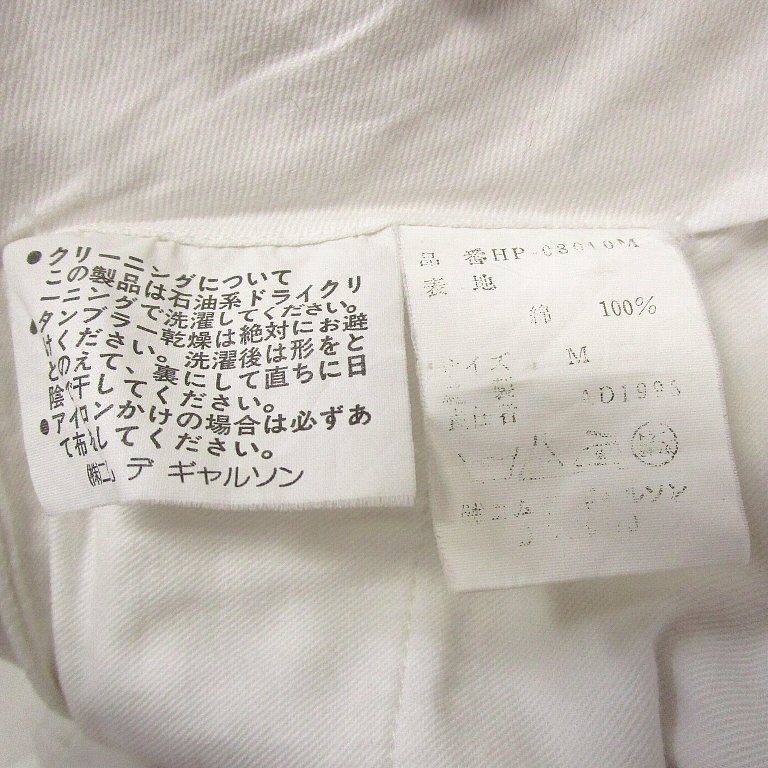 ●クリーニングについて
この製品は石油系ドライクリ
ーニングで洗濯してください。
●タンブラー乾燥は絶対にお避
けください。洗濯後は形をと
とのえて、裏にして直ちに日
陰で干してください。
●アイロンかけの場合は必ずあ
て布をしてください。
㈱コム デ ギャルソン
品 番HP-03010M
表 地
綿 100%
サイズ M
AD1995